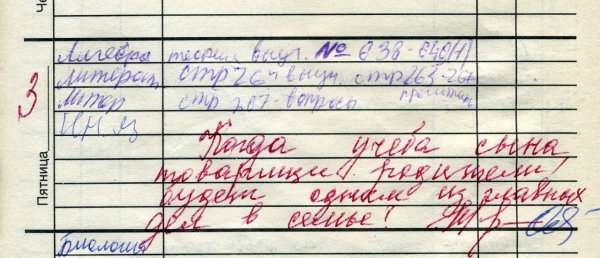 Че
Алгебра теория выуч. № 638-640(1)
Литерат стр 264 выуч. стр 263-267
Литер стр 267-вопросы прочитать
Ин яз
3
Пятница
Когда учеба сына
товарищи родители,
будет одним из главных
дел в семье!
Биология